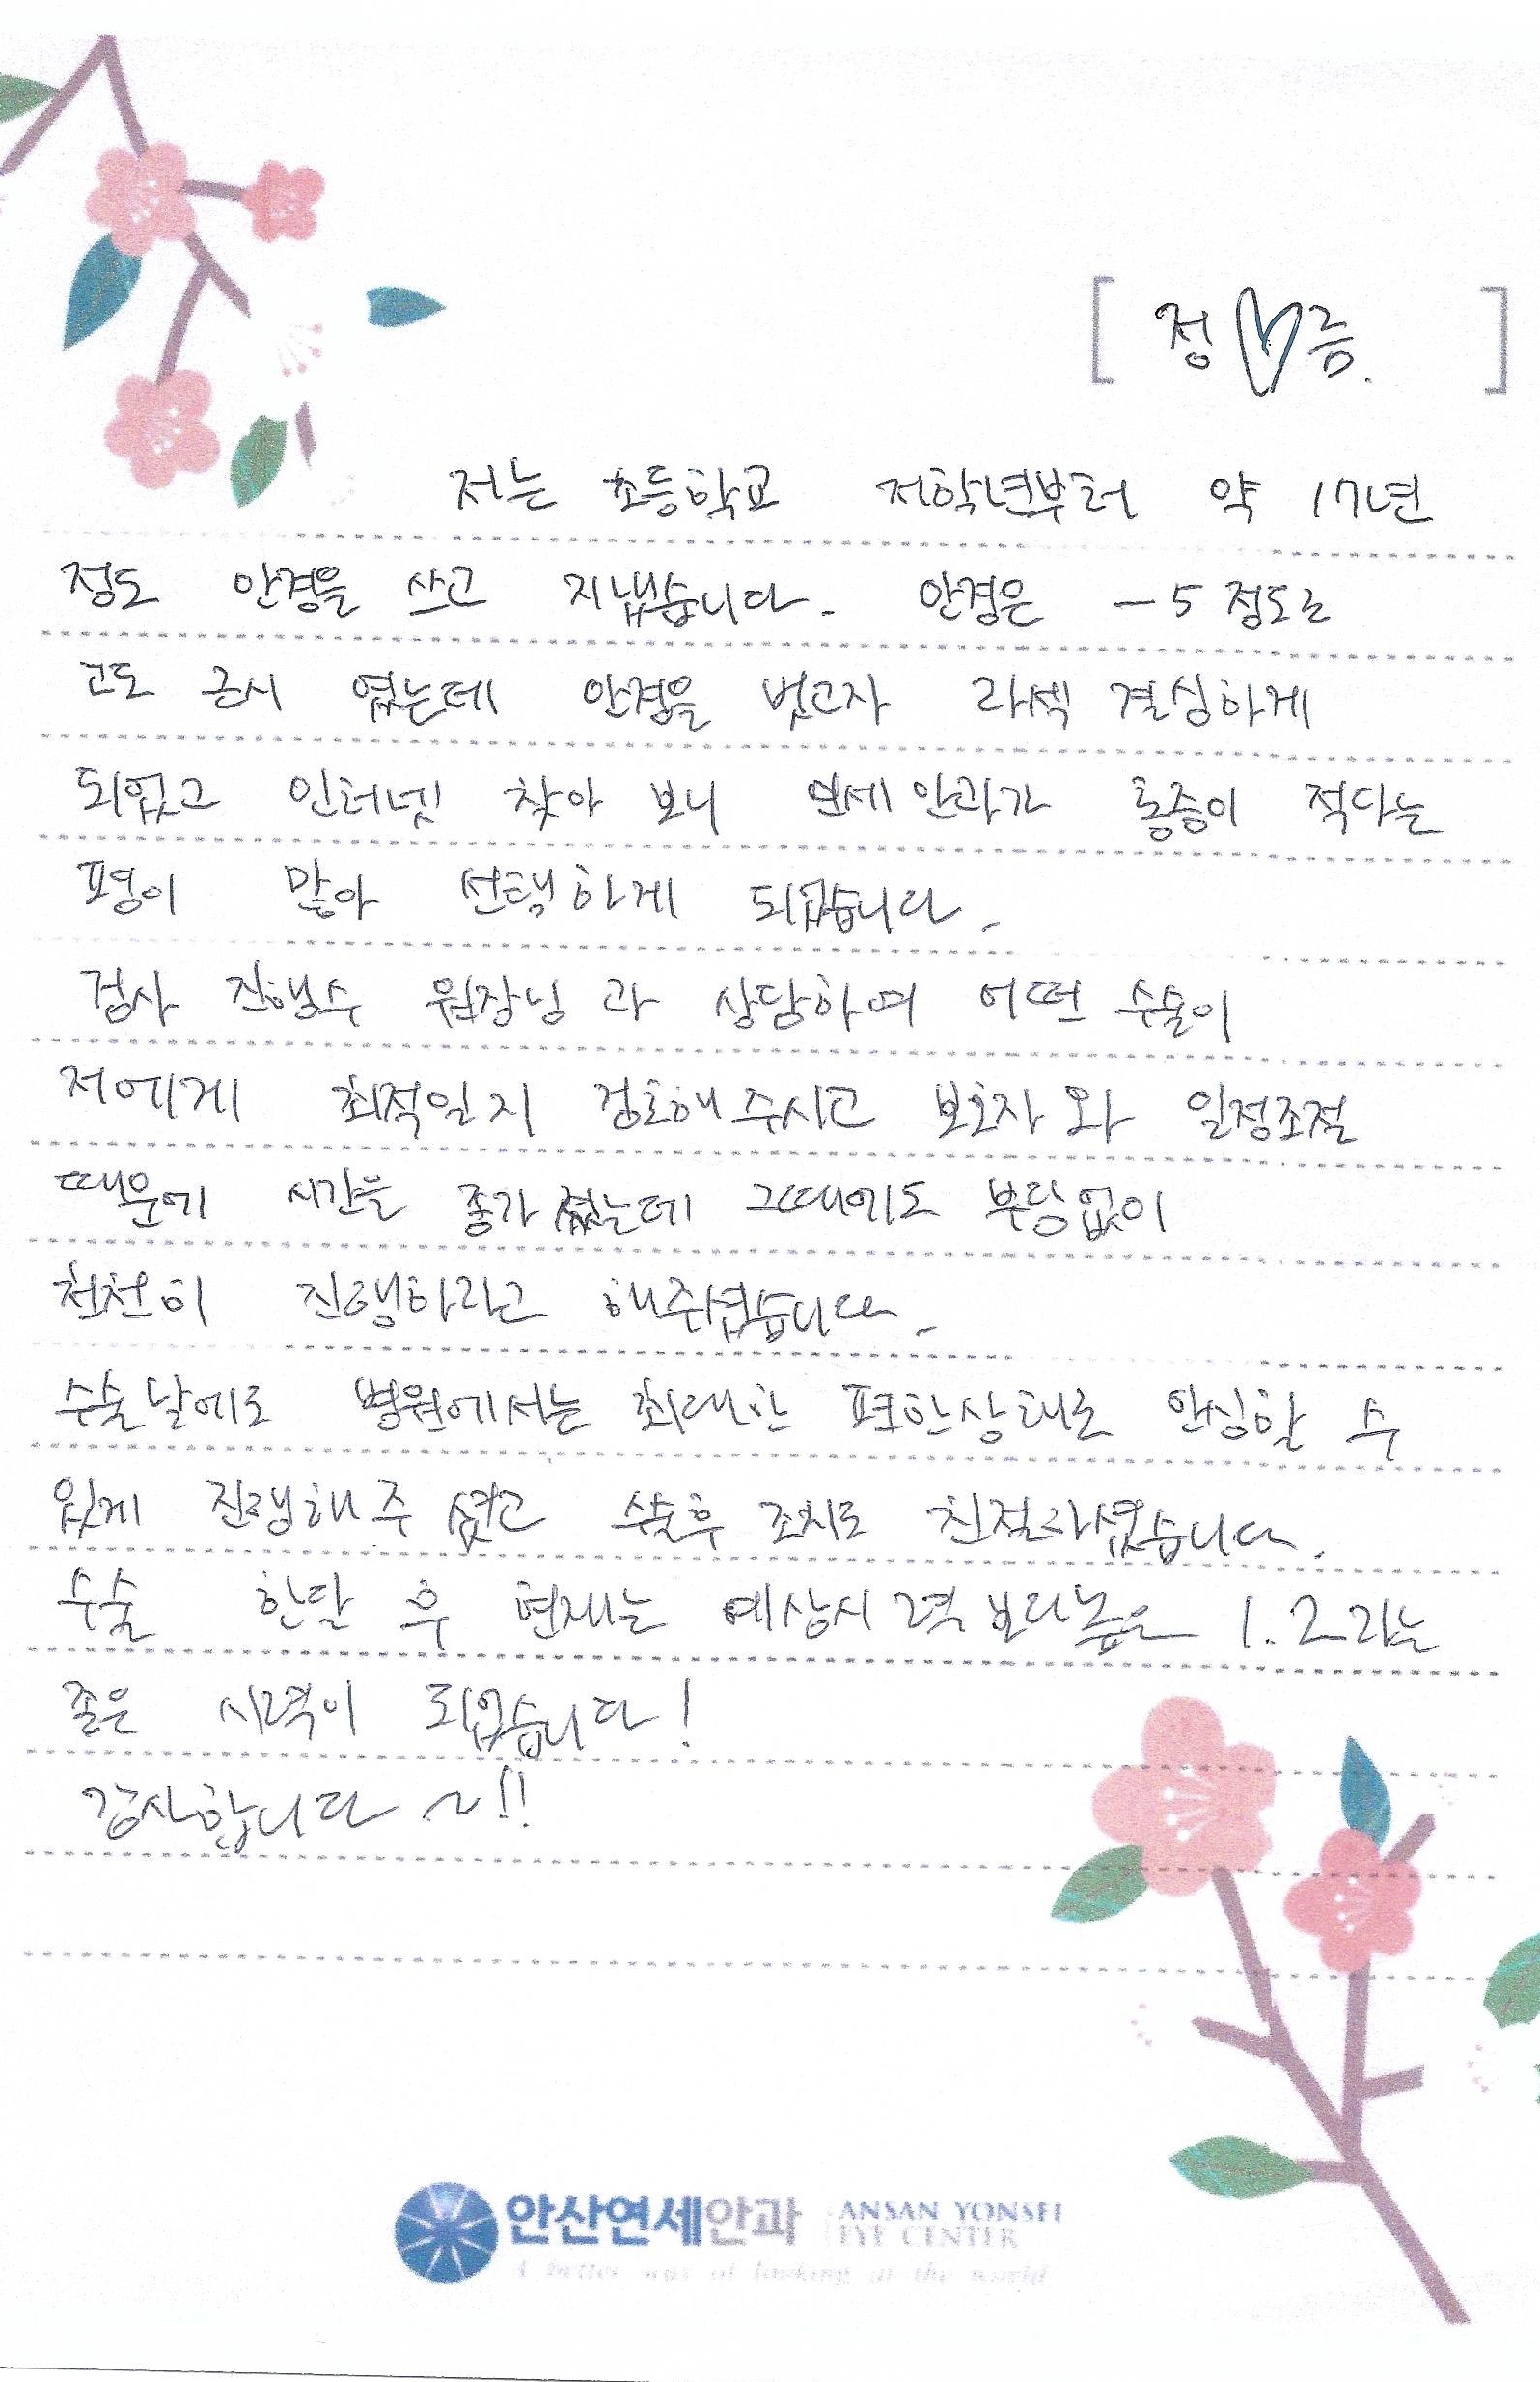 [ 정♡름. ]
저는 초등학교 저학년부터 약 17년
정도 안경을 쓰고 지냈습니다. 안경은 -5 정도로
고도 근시 였는데 안경을 벗고자 라섹 결심하게
되었고 인터넷 찾아 보니 연세안과가 통증이 적다는
평이 많아 선택하게 되었습니다.
검사 진행후 원장님과 상담하여 어떤 수술이
저에게 최적일지 정해주시고 보호자와 일정조절
때문에 시간을 좀가졌는데 그때에도 부담없이
천천히 진행하라고 해주셨습니다.
수술날에도 병원에서는 최대한 편한상태로 안심할 수
있게 진행해주셨고 수술후 조치도 친절하셨습니다.
수술 한달 후 현재는 예상시력보다높은 1.2라는
좋은 시력이 되었습니다!
감사합니다~!!
안산연세안과 ANSAN YONSEI
EYE CENTER
A better way of looking at the world